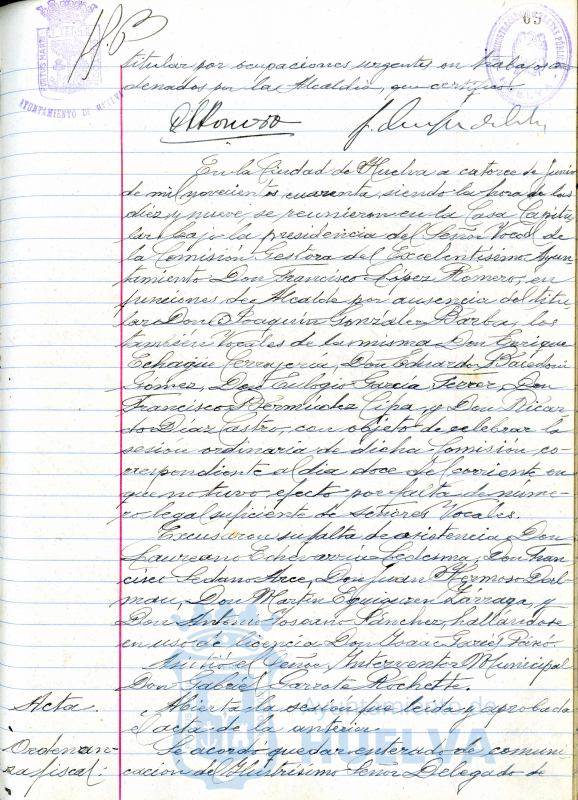 65
titular por ocupaciones urgentes en trabajos or-
denados por la Alcaldía, que certifico.
En la Ciudad de Huelva a catorce de Junio
de mil novecientos cuarenta, siendo la hora de las
diez y nueve, se reunieron en la Casa Capitu-
lar bajo la presidencia del Señor Vocal de
la Comisión Gestora del Excelentísimo Ayun-
tamiento Don Francisco López Romero, en
funciones de Alcalde por ausencia del titu-
lar Don Joaquín González Barba, los
tambien Vocales de la misma Don Enrique
Echagüe Don Eduardo
Gómez, Don Eulogio García Ferrer, Don
Francisco Bermúdez Cipa, y Don Ricar-
do Díaz Castro, con objeto de celebrar la
sesión ordinaria de dicha Comisión co-
rrespondiente al dia doce del corriente en
que no tuvo efecto por falta de núme-
ro legal suficiente de señores Vocales.
Excusaron su falta de asistencia Don
Laureano Echevarría Ledesma, Don Fran-
cisco Sedano Arce, Don Juan Hermoso
Don Martín Eguiguren Zárraga, y
Don Antonio Toscano Sánchez, hallandose
en uso de licencia Don Isaac
Asistió el Señor Interventor Municipal
Don Gabriel Garrote Rochette.
Acta. Abierta la sesion fué leida y aprobada
el acta de la anterior.
Ordenan-
za fiscal: Se acordó quedar enterado de comuni-
cación del Ilustrísimo Señor Delegado de
Ayuntamiento de
HUELVA